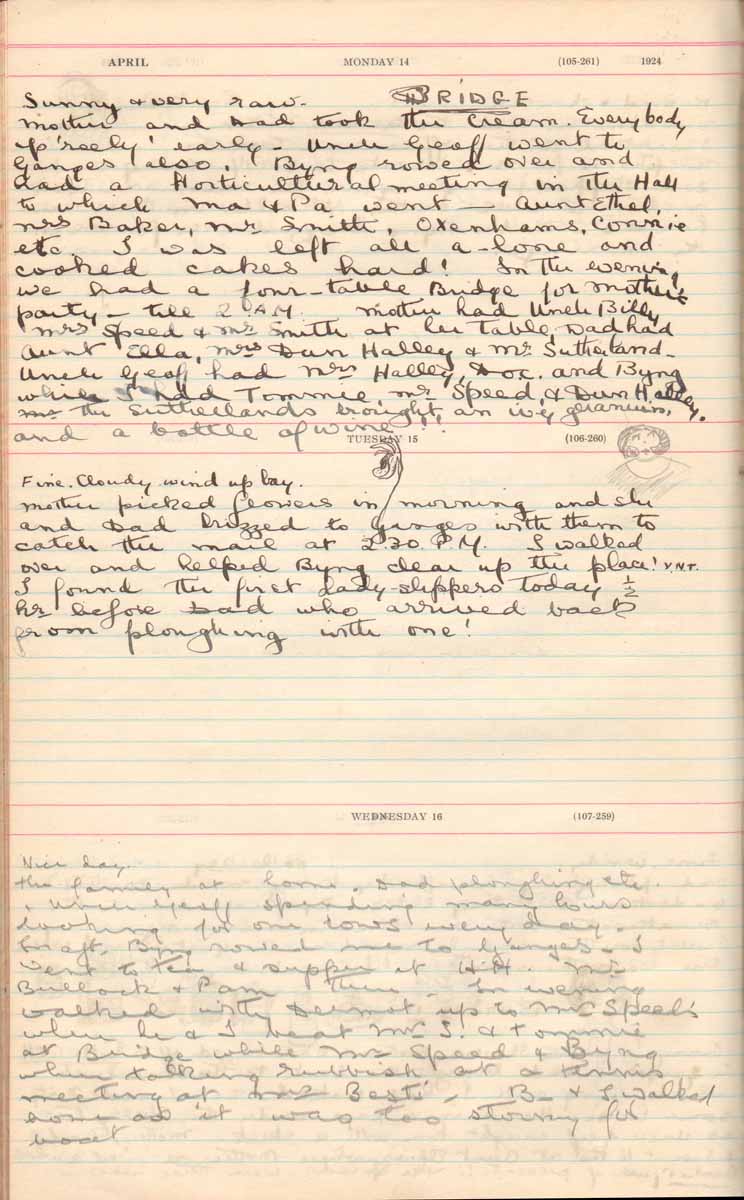 APRIL MONDAY 14 (105-261) 1924
Sunny & very raw. BRIDGE
Mother and Dad took the cream. Everybody
up 'reely' early - Uncle Geoff went to
Ganges also. Byng rowed over and
had a Horticultural meeting in the Hall
to which Ma & Pa went - Aunt Ethel,
Mrs Baker, Mr Smith, Oxenhams, Connie
etc. I was left all a-lone and
cooked cakes hard! In the evening
we had a four-table Bridge for Mother's
party - till 2 A.M. Mother had Uncle Billy
Mrs Speed & Mr Smith at her table, Dad had
Aunt Ella, Mrs Dun Halley & Mr Sutherland -
Uncle Geoff had Mrs Halley, Doc. and Byng
while I had Tommie, Mr Speed, & Dun Halley.
The Sutherlands brought an ivy geranium,
and a bottle of wine!!
TUESDAY 15 (106-260)
Fine. Cloudy wind up bay.
Mother picked flowers in morning and she
and Dad bizzed to Ganges with them to
catch the mail at 2.30 P.M. I walked
over and helped Byng clear up the place! V.N.T.
I found the first lady-slippers today ½
hr before Dad who arrived back
from ploughing with one!
WEDNESDAY 16 (107-259)
Nice day.
The family at home. Dad ploughing etc.
Uncle Geoff spending many hours
looking for our cows every day.
In aft. Byng rowed me to Ganges - I
went to tea & supper at H.H. Mrs
Bullock & Pam there - In evening
walked with Dermot up to Mrs Speed's
when he & I beat Mr S. & Tommie
at Bridge while Mrs Speed & Byng
when talking rubbish at a tennis
meeting at Mrs Bests' - B. & I walked
home as it was too stormy for
boat